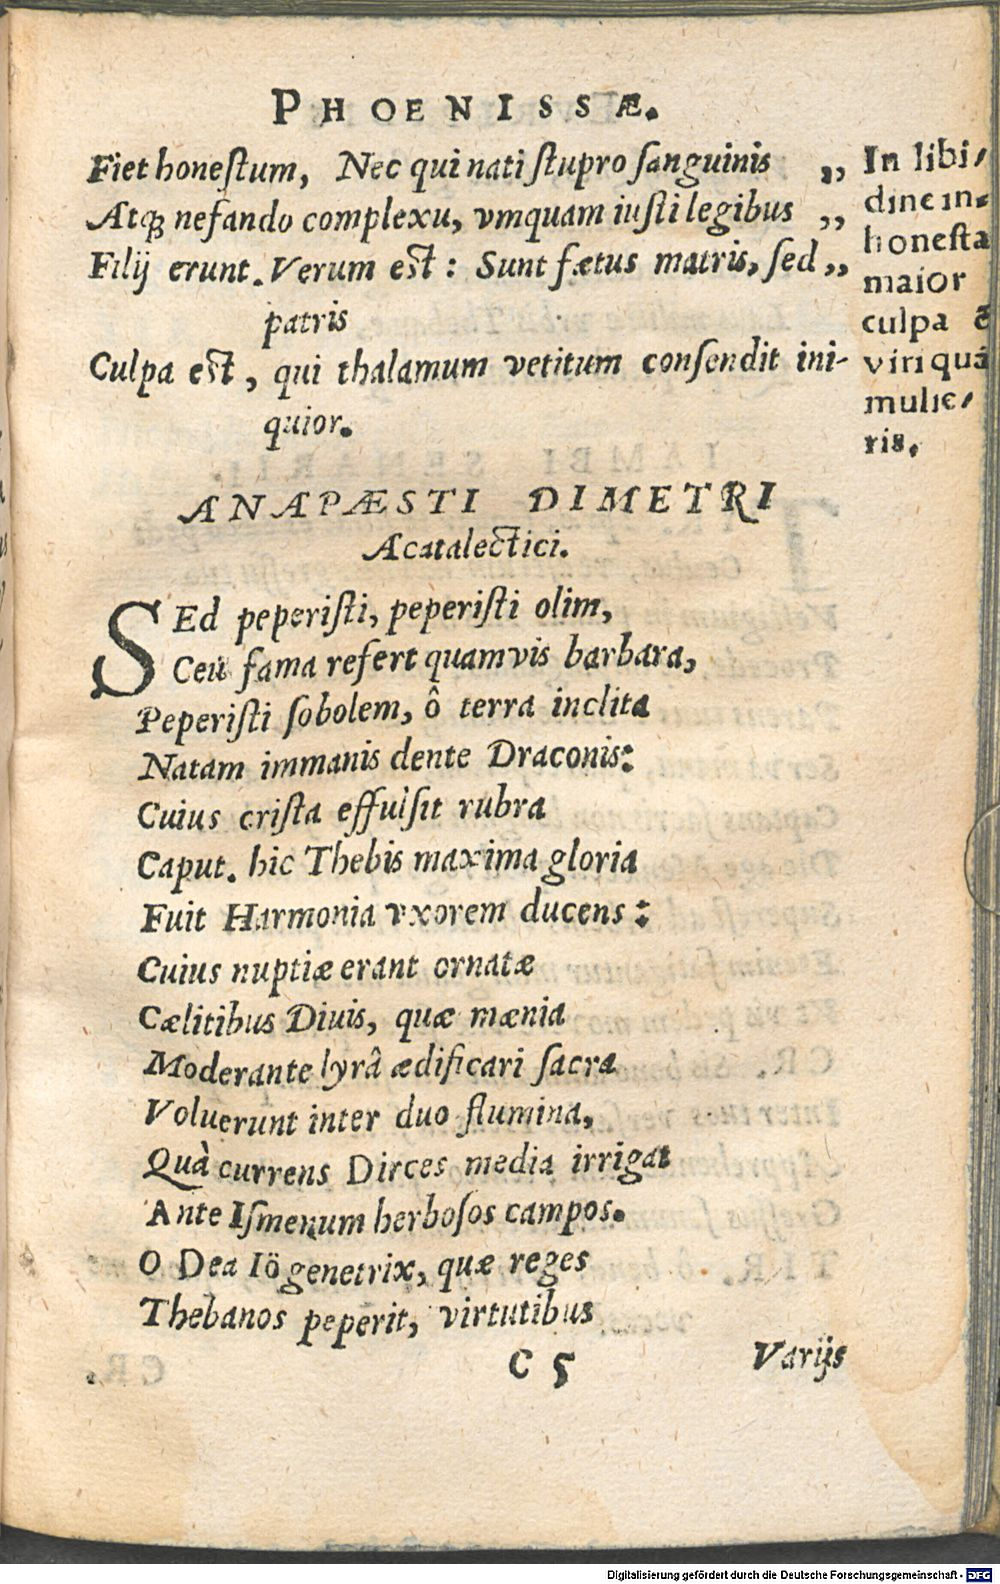 PHOENISSÆ.
Fiet honeſtum, Nec qui nati ſtupro ſanguinis „
Atq; nefando complexu, vmquam iuſti legibus „
Filij erunt. Verum eſt: Sunt fætus matris, ſed „
patris
Culpa eſt, qui thalamum vetitum conſendit ini-
quior.
In libi-
dine in-
honeſta
maior
culpa ē
viri quā
mulie-
ris.
ANAPÆSTI DIMETRI
Acatalectici.
SEd peperiſti, peperiſti olim,
Ceu fama refert quamvis barbara,
Peperiſti ſobolem, ô terra inclita
Natam immanis dente Draconis:
Cuius criſta effulſit rubra
Caput. hic Thebis maxima gloria
Fuit Harmonia vxorem ducens:
Cuius nuptiæ erant ornatæ
Cælitibus Diuis, quæ mænia
Moderante lyrâ ædificari ſacra
Voluerunt inter duo flumina,
Quà currens Dirces media irrigat
Ante Iſmenum herboſos campos.
O Dea Iö genetrix, quæ reges
Thebanos peperit, virtutibus
C 5
Varijs
Digitalisierung gefördert durch die Deutsche Forschungsgemeinschaft - DFG